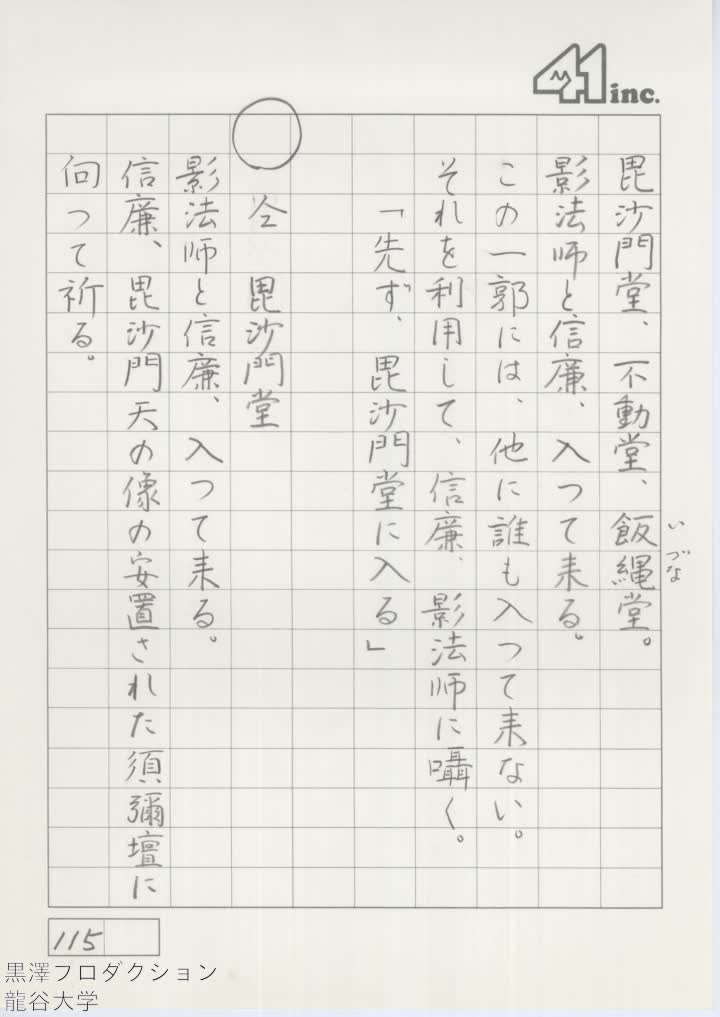 41 inc.
毘沙門堂、不動堂、飯縄堂。
いづな
影法師と信廉、入つて来る。
この一郭には、他に誰も入つて来ない。
それを利用して、信廉、影法師に囁く。
「先ず、毘沙門堂に入る」
○ 仝 毘沙門堂
影法師と信廉、入つて来る。
信廉、毘沙門天の像の安置された須彌壇に
向つて祈る。
115
黒澤プロダクション
龍谷大学